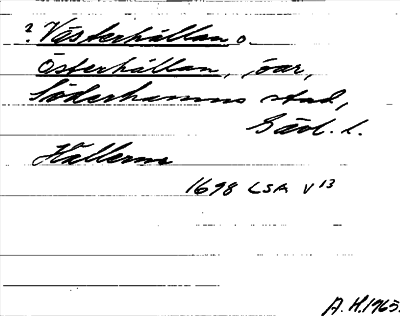 ? Västerhällan o.
Österhällan, öar,
Söderhamns stad,
Gävl. l.
Hällerna
1698 LSA V 13
A. H. 1965.